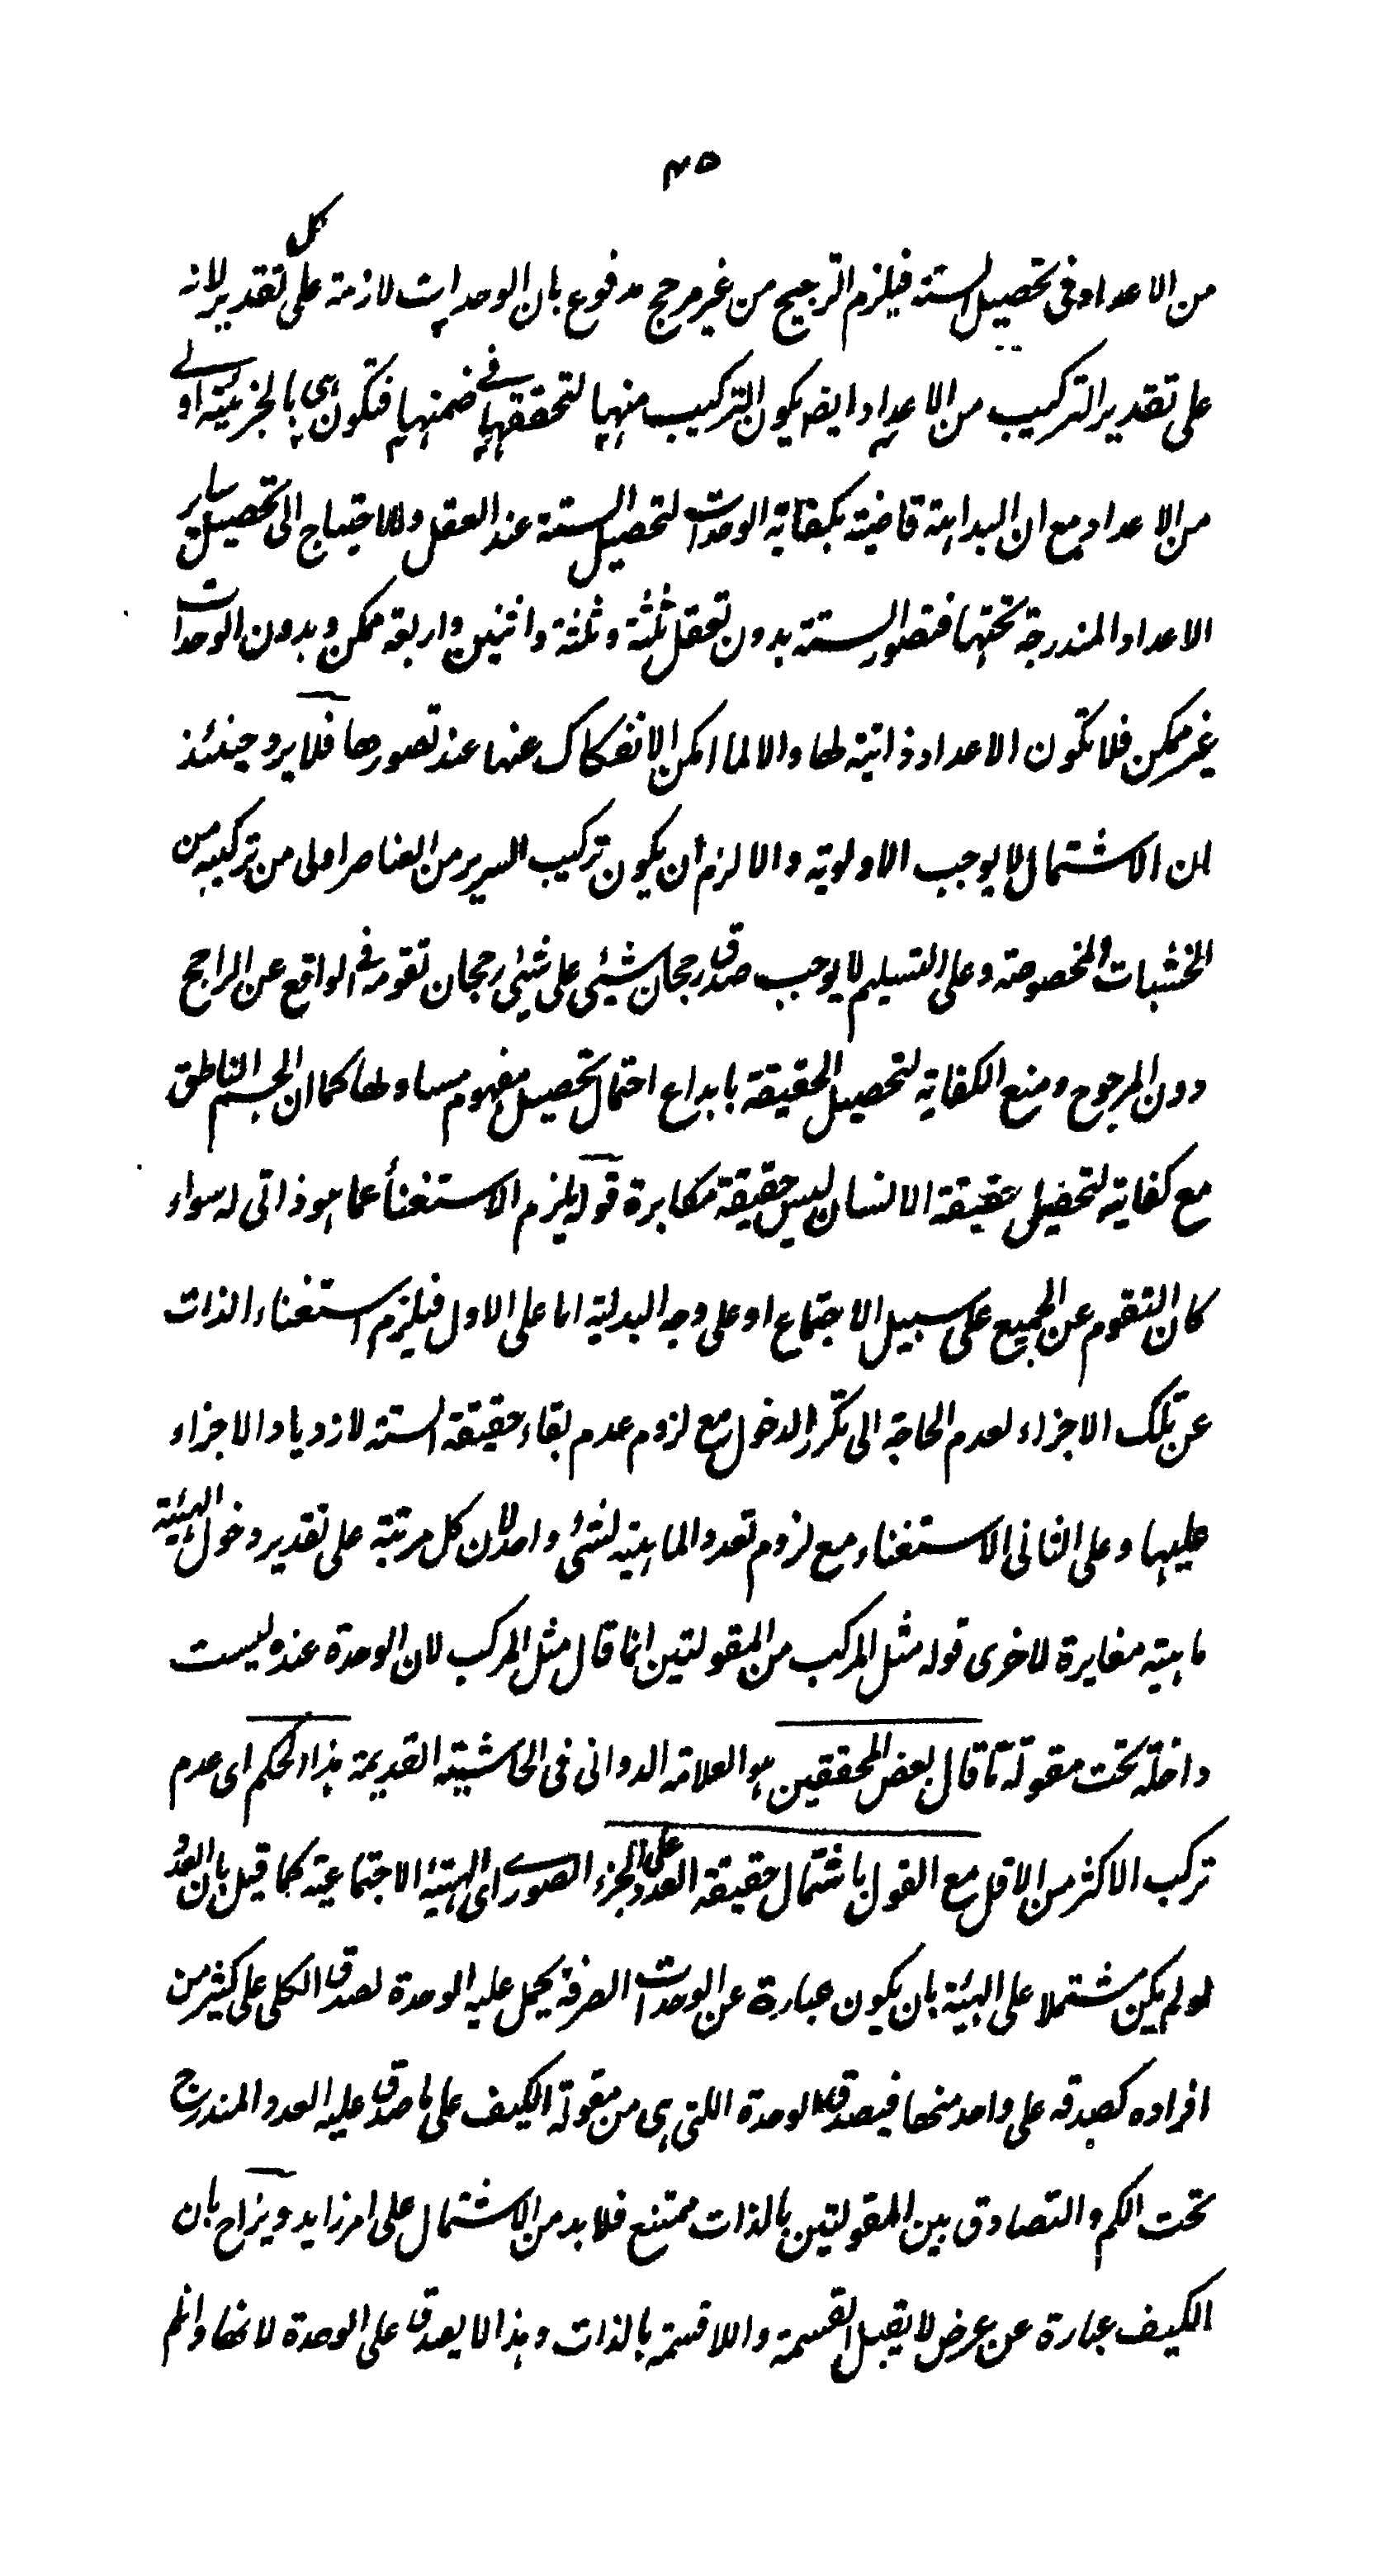 ٤٥
من الاعداد فی تحصیل الستة فیلزم الترجیح من غیر مرجح مدفوع بان الوحدات لازمة علی کل تقدیر لانه
علی تقدیر الترکیب من الاعداد ایضا یکون الترکیب منها لتحققها فی ضمنها فتکون هی بالجزئیة اولی
من الاعداد مع ان البداهة قاضیة بکفایة الوحدات لتحصیل الستة عند العقل وللاحتیاج الی تحصیل سایر
الاعداد المندرجة تحتها فتصور الستة بدون تعقل ثلثة وثلثة واثنین واربعة ممکن وبدون الوحدات
غیر ممکن فلا تکون الاعداد ذاتیة لها والا لما امکن الانفکاک عنها عند تصورها فلا یرد حینئذ
ان الاشتمال لا یوجب الاولویة والا لزم أن یکون ترکیب السریر من العناصر اولی من ترکیبه من
الخشبات المخصوصة وعلی التسلیم لا یوجب صدق رجحان شیئی علی شیئی رجحان تقومه فی الواقع عن الراجح
دون المرجوح ومنع الکفایة لتحصیل الحقیقة بابداع احتمال تحصیل مفهوم مساو لها کما ان الجسم الناطق
مع کفایته لتحصیل حقیقة الانسان لیس حقیقة مکابرة قوله یلزم الاستغنأ عما هو ذاتی له سواء
کان التقوم عن الجمیع علی سبیل الاجتماع او علی وجه البدلیة اما علی الاول فیلزم استغناء الذات
عن تلک الاجزاء لعدم الحاجة الی تکرر الدخول مع لزوم عدم بقاء حقیقة الستة لازدیاد الاجزاء
علیها وعلی الثانی الاستغناء مع لزوم تعدد الماهیة لشئ واحد لان کل مرتبة علی تقدیر دخول الهیئة
ماهیة مغایرة للاخری قوله مثل المرکب من المقولتین انما قال مثل المرکب لان الوحدة عنده لیست
داخلة تحت مقولة ما قال بعض المحققین هو العلامة الدوانی فی الحاشیة القدیمة هذا الحکم ای عدم
ترکب الاکثر من الاقل مع القول باشتمال حقیقة العدد علی الجزء الصوری ای الهیئة الاجتماعیة کما قیل بان العدد
لو لم یکن مشتملا علی الهیئة بان یکون عبارة عن الوحدات الصرفة یحمل علیه الوحدة لصدق الکلی علی کثیر من
افراده کصدقه علی واحد منها فیصدق الوحدة اللتی هی من مقولة الکیف علی ما صدق علیه العدد المندرج
تحت الکم والتصادق بین المقولتین بالذات ممتنع فلا بد من الاشتمال علی امر زاید ویزاح بان
الکیف عبارة عن عرض لا یقبل القسمة واللا قسمة بالذات وهذا لا یصدق علی الوحدة لانها وان لم